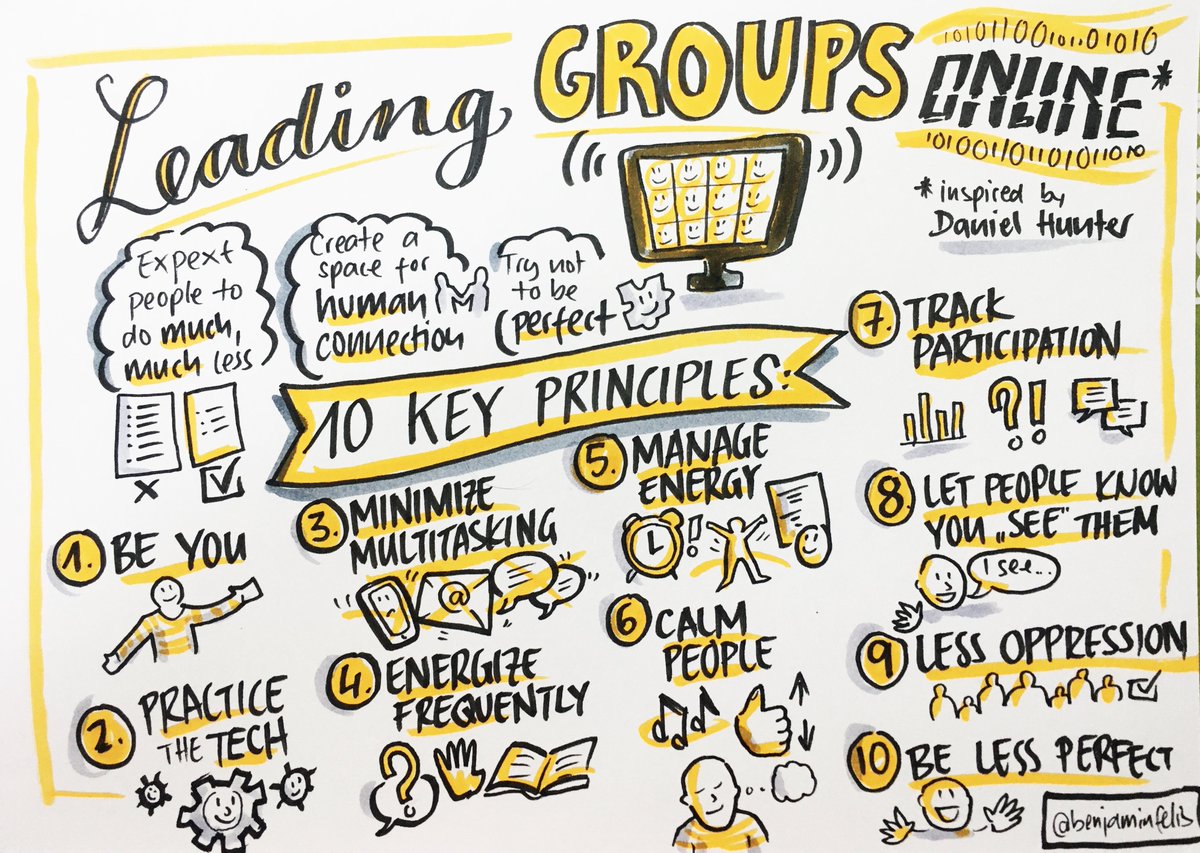 Leading GROUPS ONLINE*
1010110010110101010
10100110110101011010
*inspired by
Daniel Hunter
Expext
people to
do much,
much less
Create a
space for
human
connection
Try not
to be
perfect
10 KEY PRINCIPLES:
1. BE YOU
2. PRACTICE
THE TECH
3. MINIMIZE
MULTITASKING
@
4. ENERGIZE
FREQUENTLY
?
5. MANAGE
ENERGY
!
6 CALM
PEOPLE
7. TRACK
PARTICIPATION
?!
8. LET PEOPLE KNOW
YOU „SEE" THEM
I see...
9 LESS OPPRESSION
10 BE LESS PERFECT
@benjaminfelis